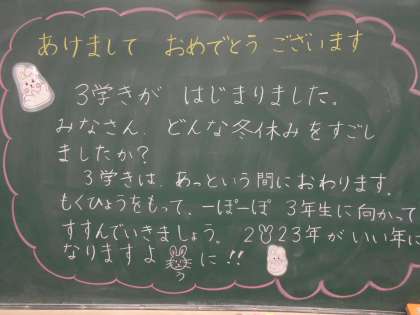 あけまして おめでとう ございます
3学きが はじまりました。
みなさん、どんな冬休みをすごし
ましたか?
3学きは、あっという間におわります。
もくひょうをもって、一ぽ一ぽ 3年生に向かって
すすんでいきましょう。2023年がいい年に
なりますように!!